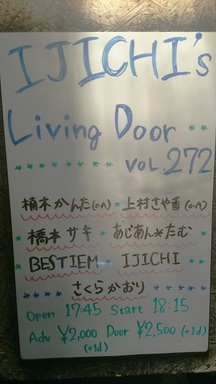 IJICHI's
Living Door
vol.272
楠木かんた(o.A) * 上村さや香(o.A)
* 橋本サキ * あじあん*たむ
BESTIEM IJICHI
さくらかおり
Open 17:45 Start 18:15
Adv ¥2,000 Door ¥2,500 (+1d)
(+1d)